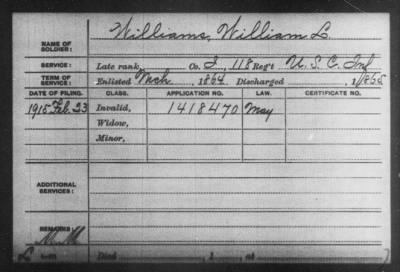 Williams, William L.
NAME OF SOLDIER:
SERVICE: Late rank, Co. I, 118 Reg't U. S. C. Inf
TERM OF SERVICE: Enlisted Mch, 1864 Discharged , 1865
DATE OF FILING. CLASS. APPLICATION NO. LAW. CERTIFICATE NO.
1915 Feb. 23 Invalid, 1418470 May
Widow,
Minor,
ADDITIONAL SERVICES:
REMARKS:
Died , 1 , at